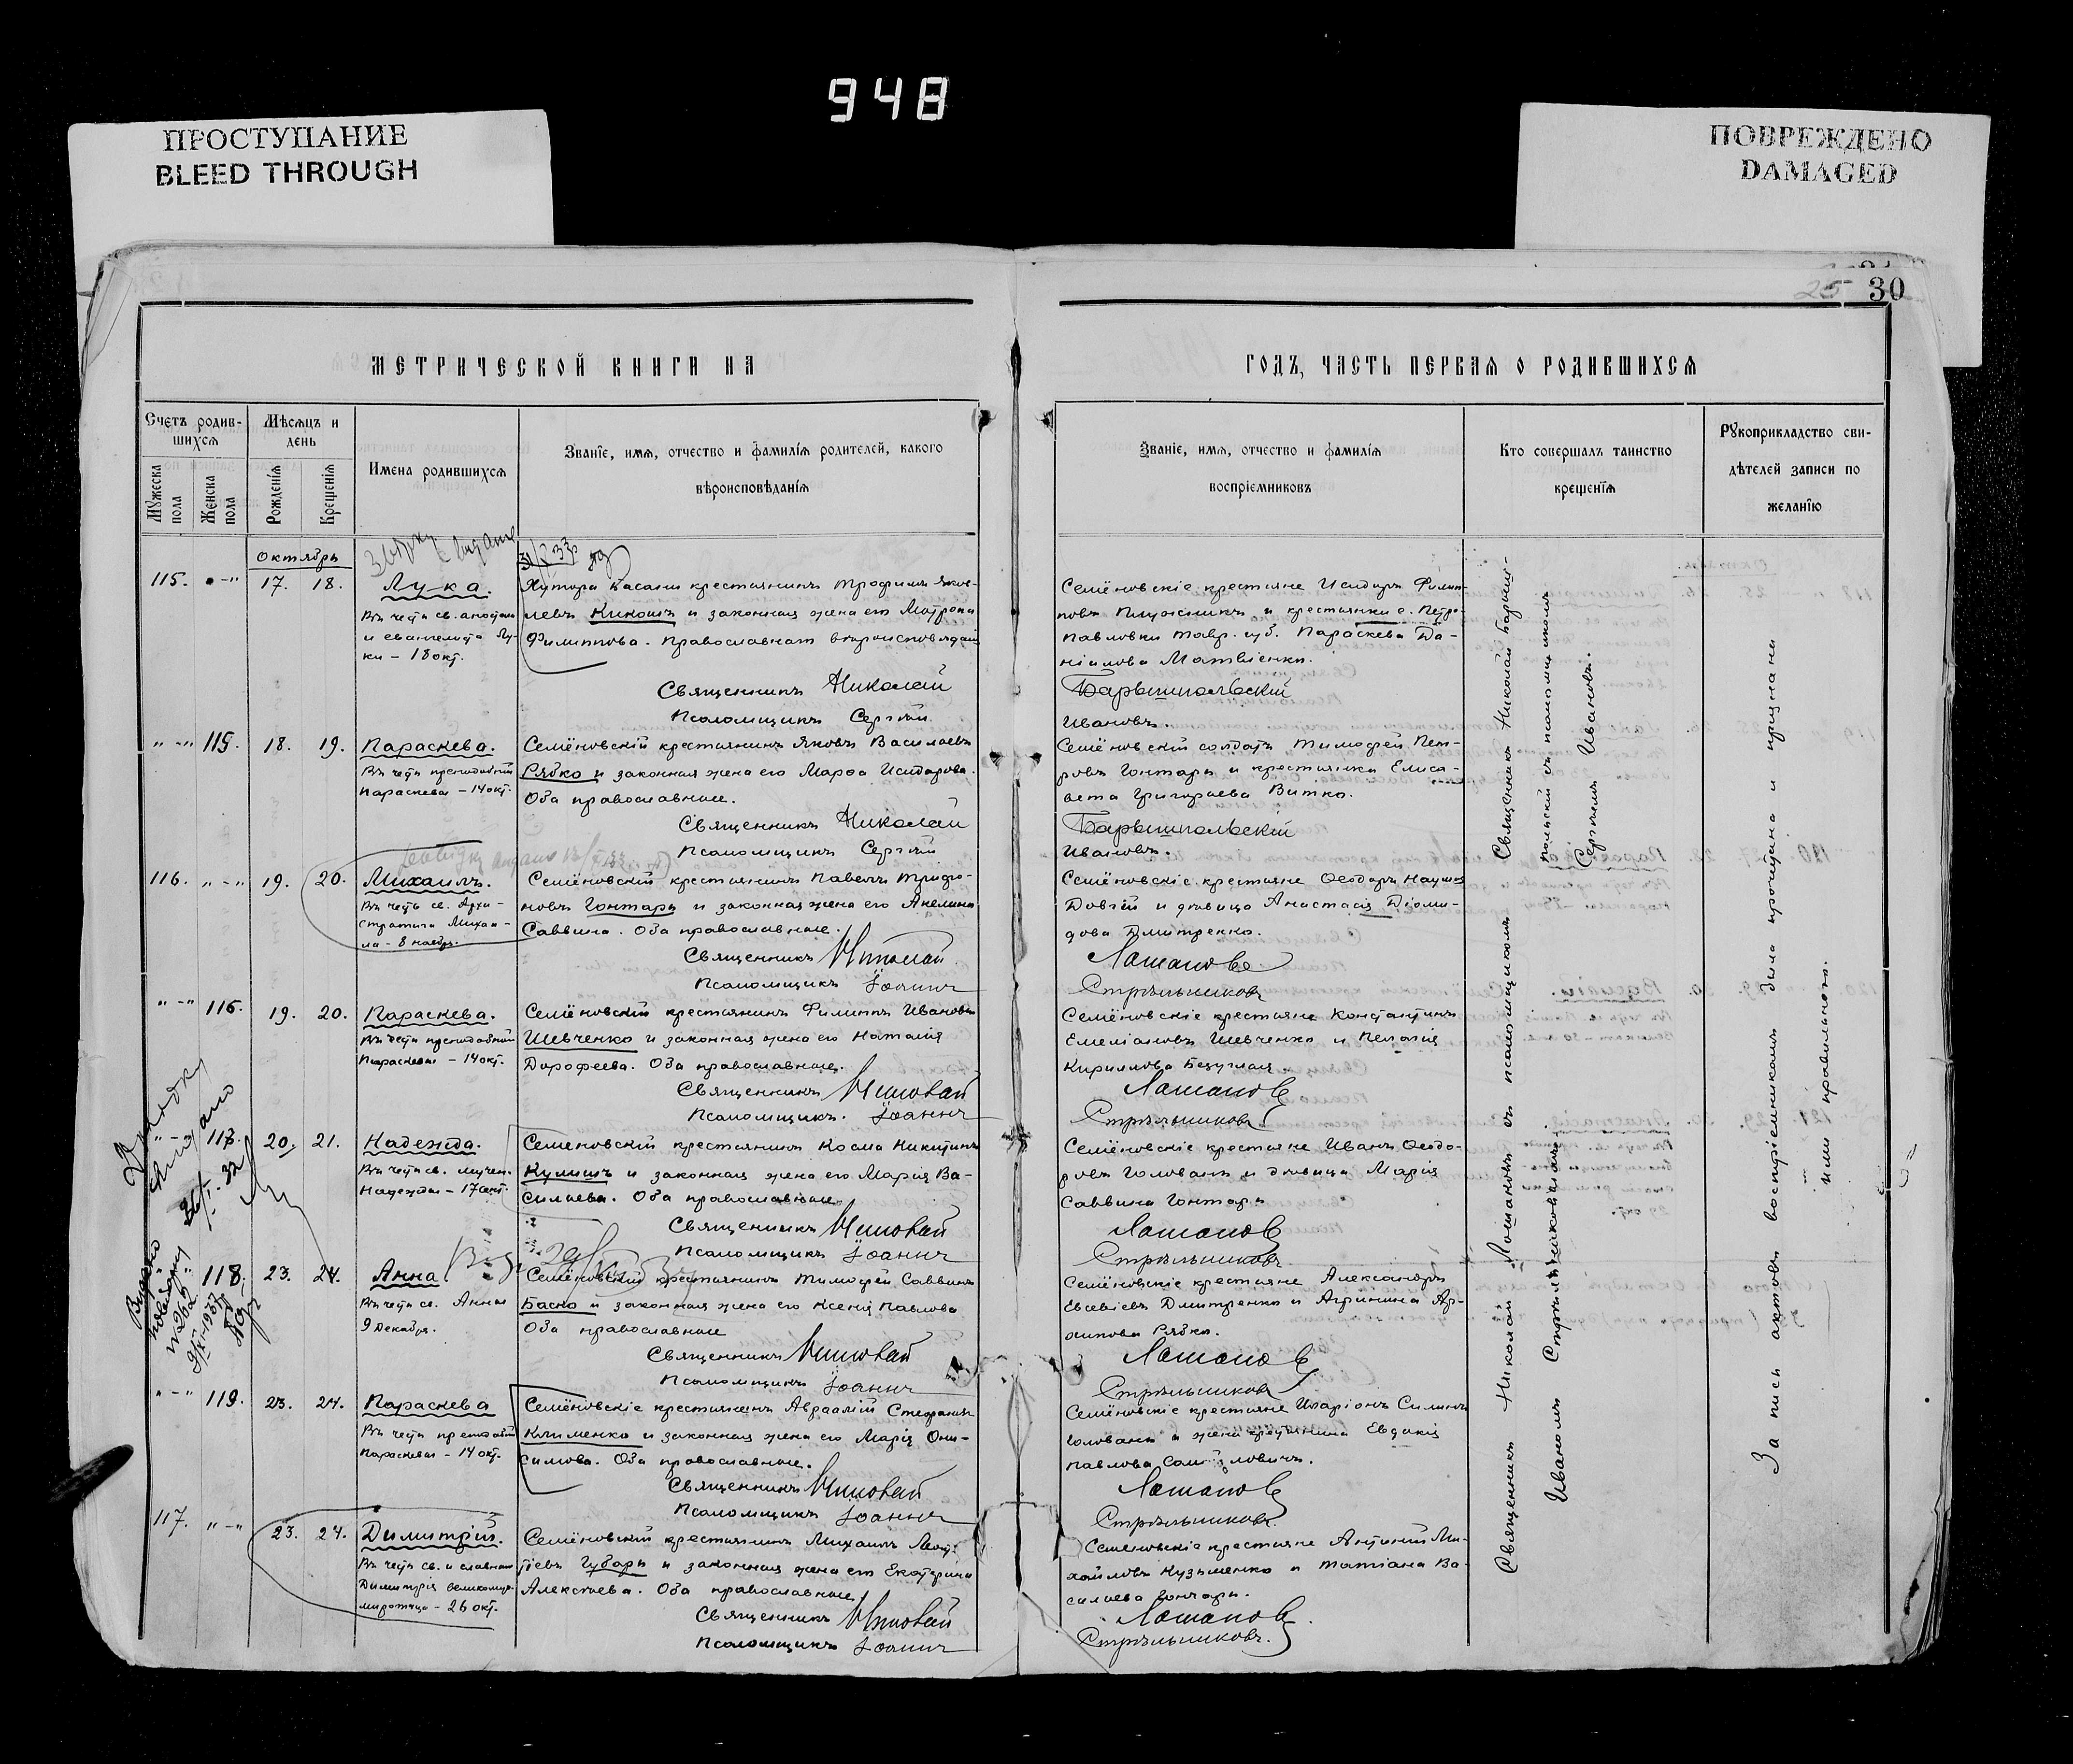 948
ПРОСТУПАНИЕ
BLEED THROUGH
ПОВРЕЖДЕНО
DAMAGED
25 30
МЕТРИЧЕСКОЙ КНИГИ НА
ГОДЪ, ЧАСТЬ ПЕРВАЯ О РОДИВШИХСЯ
Счетъ родив-
шихся
Мужеска пола
Женска пола
Мѣсяцъ и
день
Рожденія
Крещенія
Имена родившихся
Званіе, имя, отчество и фамилія родителей, какого
вѣроисповѣданія
Званіе, имя, отчество и фамилія
воспріемниковъ
Кто совершалъ таинство
крещенія
Рукоприкладство сви-
дѣтелей записи по
желанію
Октябрь
115. 17. 18. Лука.
Въ честь св. апостола
и евангелиста Лу-
ки - 18 окт.
Хутора Касани крестьянинъ Трофимъ Яков-
левъ Кикошъ и законная жена его Матрона
Филиппова. Православнаго вѣроисповѣданія
Священникъ Николай
Псаломщикъ Сергѣй
Семёновскіе крестьяне Исидоръ Филип-
повъ и крестьянка с. Петро-
павловки Тавр. губ. Параскева Да-
ніилова Матвіенко.
Барышпольскій
Ивановъ.
115. 18. 19. Параскева.
Въ честь преподобной
Параскевы - 14 окт.
Семёновскій крестьянинъ Яковъ Васильевъ
Рябко и законная жена его Марфа Исидорова.
Оба православные.
Священникъ Николай
Псаломщикъ Сергѣй
Семёновскій солдатъ Тимофей Пет-
ровъ Гонтарь и крестьянка Елиса-
вета Григорьева Витко.
Барышпольскій
Ивановъ.
116. 19. 20. Михаилъ.
Въ честь св. Архи-
стратига Михаи-
ла - 8 ноябр.
Семёновскій крестьянинъ Павелъ Трифо-
новъ Гонтарь и законная жена его Акелина
Саввина. Оба православные.
Священникъ Николай
Псаломщикъ Іоаннъ
Семёновскіе крестьяне Ѳеодоръ Наумовъ
Довгій и дѣвица Анастасія Діоми-
дова Дмитренко.
Лашановъ
Стрѣльниковъ
116. 19. 20. Параскева.
Въ честь преподобной
Параскевы - 14 окт.
Семёновскій крестьянинъ Филиппъ Ивановъ
Шевченко и законная жена его Наталія
Дорофеева. Оба православные.
Священникъ Николай
Псаломщикъ. Іоаннъ
Семёновскіе крестьяне Константинъ
Емеліановъ Шевченко и Пелагія
Кириллова Безуглая.
Лашановъ
Стрѣльниковъ
117. 20. 21. Надежда.
Въ честь св. мучен.
Надежды - 17 сент.
Семеновскій крестьянинъ Косма Никитинъ
Кулишъ и законная жена его Марія Ва-
сильева. Оба православные.
Священникъ Николай
Псаломщикъ Іоаннъ
Семёновскіе крестьяне Иванъ Ѳеодо-
ровъ Головань и дѣвица Марія
Саввина Гонтарь
Лашановъ
Стрѣльниковъ
118. 23. 24. Анна.
Въ честь св. Анны
9 Декабря.
Семёновскій крестьянинъ Тимофей Саввинъ
Баско и законная жена его Ксенія Павлова
Оба православные
Священникъ Николай
Псаломщикъ Іоаннъ
Семёновскіе крестьяне Александръ
Евсевіевъ Дмитренко и Агрипина Ар-
хипова Рябко.
Лашановъ
Стрѣльниковъ
119. 23. 24. Параскева
Въ честь преподобной
Параскевы - 14 окт.
Семёновскіе крестьянинъ Авраамій Стефановъ
Клименко и законная жена его Марія Они-
симова. Оба православные.
Священникъ Николай
Псаломщикъ Іоаннъ
Семёновскіе крестьяне Иларіонъ Силинъ
Головань и жена крестьянина Евдокія
Павлова Самойловичъ.
Лашановъ
Стрѣльниковъ.
117. 23. 24. Димитрій.
Въ честь св. и славнаго
Димитрія великому-
Мироточца - 26 окт.
Семёновскій крестьянинъ Михаилъ
Губарь и законная жена его Екатерина
Алексѣева. Оба православные
Священникъ Николай
Псаломщикъ Іоаннъ
Семеновскіе крестьяне Антоній Ми-
хайловъ Кузьменко и Татіана Ва-
сильева Гонтарь.
Лашановъ.
Стрѣльниковъ.
Священникъ Николай Барыш-
польскій съ псаломщикомъ
Сергѣемъ Ивановъ.
Священникъ Николай Лашановъ съ псаломщикомъ
Иваномъ Стрѣльниковымъ
Запись актовъ воспріемникамъ была прочитана и признана
ими правильною.